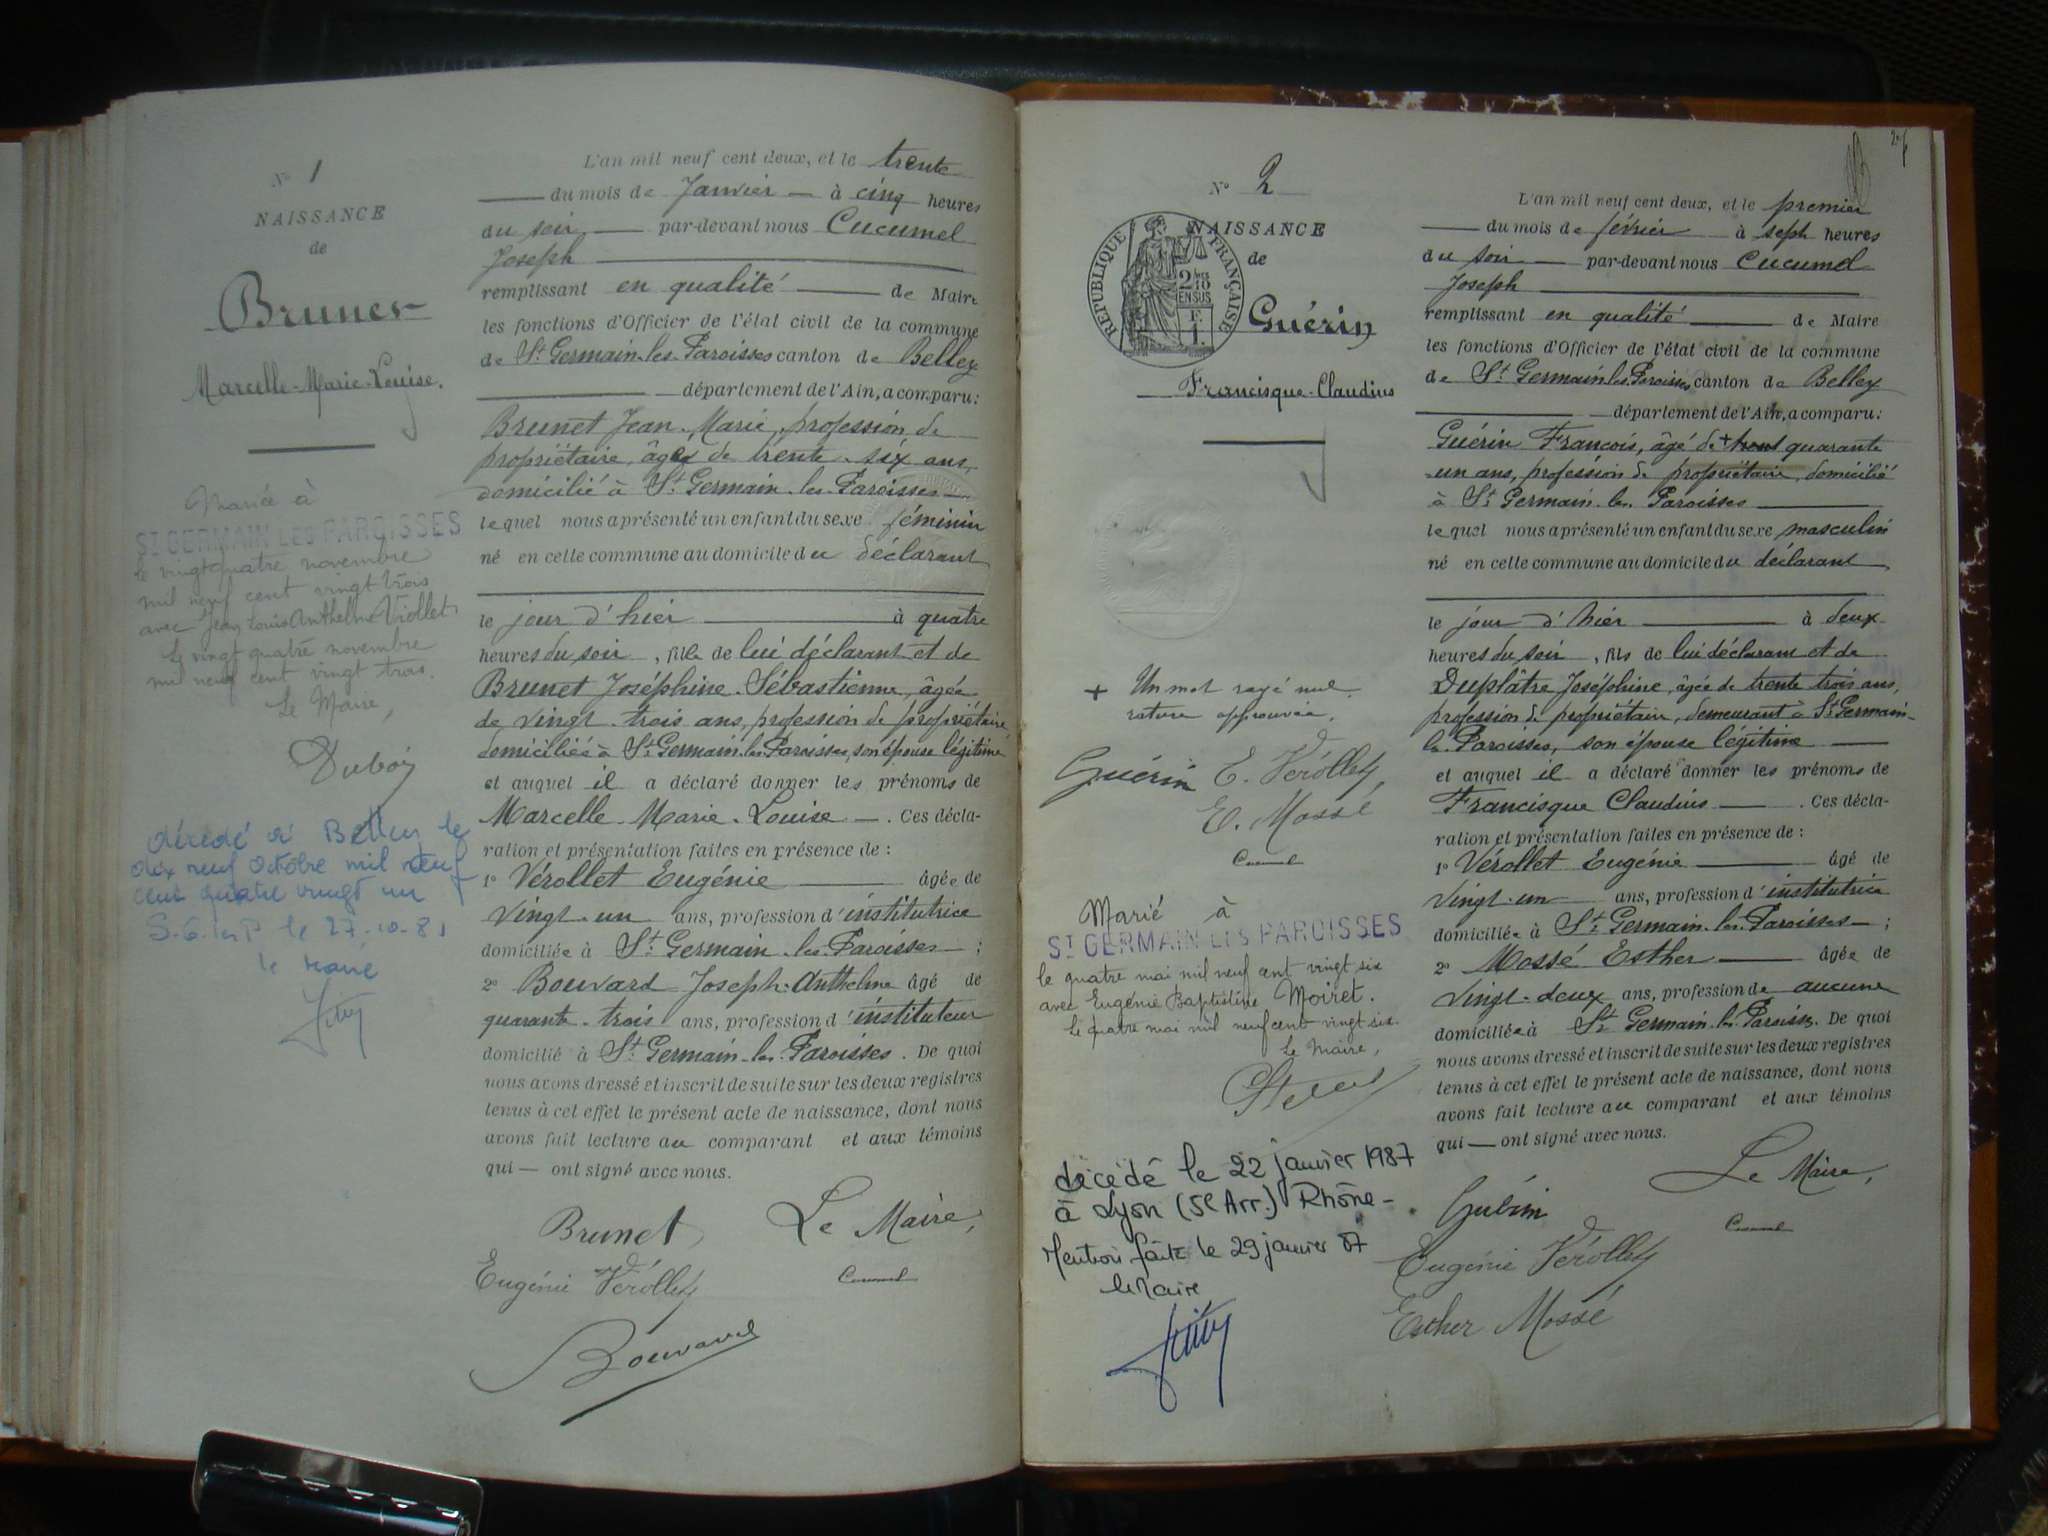 N° 1
NAISSANCE
de
Brunet
Marcelle-Marie-Louise.
Mariée à
ST GERMAIN LES PAROISSES
le vingt quatre novembre
mil neuf cent vingt trois
avec Jean Louis Anthelme Viollet
Le vingt quatre novembre
mil neuf cent vingt trois.
Le Maire,
Duboy
décédé à Belley le
dix neuf Octobre mil neuf
cent quatre vingt un
S.G. les P le 27-10-81
le Maire
L'an mil neuf cent deux, et le trente
du mois de Janvier à cinq heures
du soir, par-devant nous Cucumel
Joseph
remplissant en qualité de Maire
les fonctions d'Officier de l'état civil de la commune
de St Germain-les-Paroisses canton de Belley
département de l'Ain, a comparu:
Brunet Jean-Marie, profession de
propriétaire, âgé de trente-six ans,
domicilié à St Germain-les-Paroisses
lequel nous a présenté un enfant du sexe féminin
né en cette commune au domicile du déclarant
le jour d'hier à quatre
heures du soir, fille de lui déclarant et de
Brunet Joséphine-Sébastienne, âgée
de vingt-trois ans, profession de propriétaire,
domiciliée à St Germain-les-Paroisses, son épouse légitime
et auquel il a déclaré donner les prénoms de
Marcelle-Marie-Louise. Ces décla-
ration et présentation faites en présence de :
1° Vérollet Eugénie âgée de
Vingt-un ans, profession d'institutrice
domiciliée à St Germain-les-Paroisses ;
2° Bouvard Joseph-Anthelme âgé de
quarante-trois ans, profession d'instituteur
domicilié à St Germain-les-Paroisses. De quoi
nous avons dressé et inscrit de suite sur les deux registres
tenus à cet effet le présent acte de naissance, dont nous
avons fait lecture au comparant et aux témoins
qui — ont signé avec nous.
Brunet Le Maire,
Eugénie Vérollet Cucumel
Bouvard
N° 2
NAISSANCE
de
RÉPUBLIQUE FRANÇAISE
2/10
EN SUS
F.
1.
Guérin
Francisque-Claudius
+ Un mot rayé nul
rature approuvée.
Guérin E. Vérollet
E. Mossé
Cucumel
Marié à
ST GERMAIN LES PAROISSES
le quatre mai mil neuf cent vingt six
avec Eugénie Baptistine Moiret.
Le quatre mai mil neuf cent vingt six.
Le Maire,
décédé le 22 janvier 1987
à Lyon (5e Arr.) Rhône-
Mention faite le 29 janvier 87
le Maire
L'an mil neuf cent deux, et le premier
du mois de février à sept heures
du soir par-devant nous Cucumel
Joseph
remplissant en qualité de Maire
les fonctions d'Officier de l'état civil de la commune
de St Germain les Paroisses canton de Belley
département de l'Ain, a comparu:
Guérin François, âgé de + trent quarante
-un ans, profession de propriétaire, domicilié
à St Germain-les-Paroisses
lequel nous a présenté un enfant du sexe masculin
né en cette commune au domicile du déclarant
le jour d'hier à deux
heures du soir, fils de lui déclarant et de
Duplâtre Joséphine, âgée de trente trois ans,
profession de propriétaire, demeurant à St Germain-
les-Paroisses, son épouse légitime
et auquel il a déclaré donner les prénoms de
Francisque Claudius. Ces décla-
ration et présentation faites en présence de :
1° Vérollet Eugénie âgé de
Vingt-un ans, profession d'institutrice
domiciliée à St Germain-les-Paroisses ;
2° Mossé Esther âgée de
Vingt-deux ans, profession de aucune
domiciliée à St Germain-les-Paroisses. De quoi
nous avons dressé et inscrit de suite sur les deux registres
tenus à cet effet le présent acte de naissance, dont nous
avons fait lecture au comparant et aux témoins
qui — ont signé avec nous.
Guérin Le Maire,
Eugénie Vérollet Cucumel
Esther Mossé